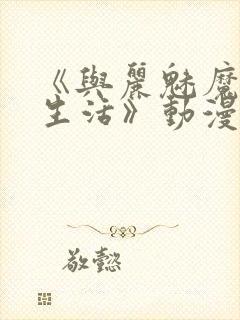 《與麗魅魔
生活》動漫
敬懿